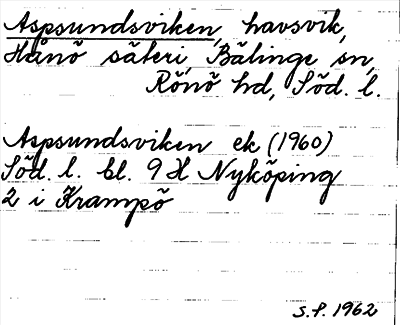 Aspsundsviken, havsvik,
Hånö säteri, Bälinge sn,
Rönö hd, Söd. l.
Aspsundsviken ek (1960)
Söd. l. bl. 9 H Nyköping
2 i Krampö
S.P. 1962